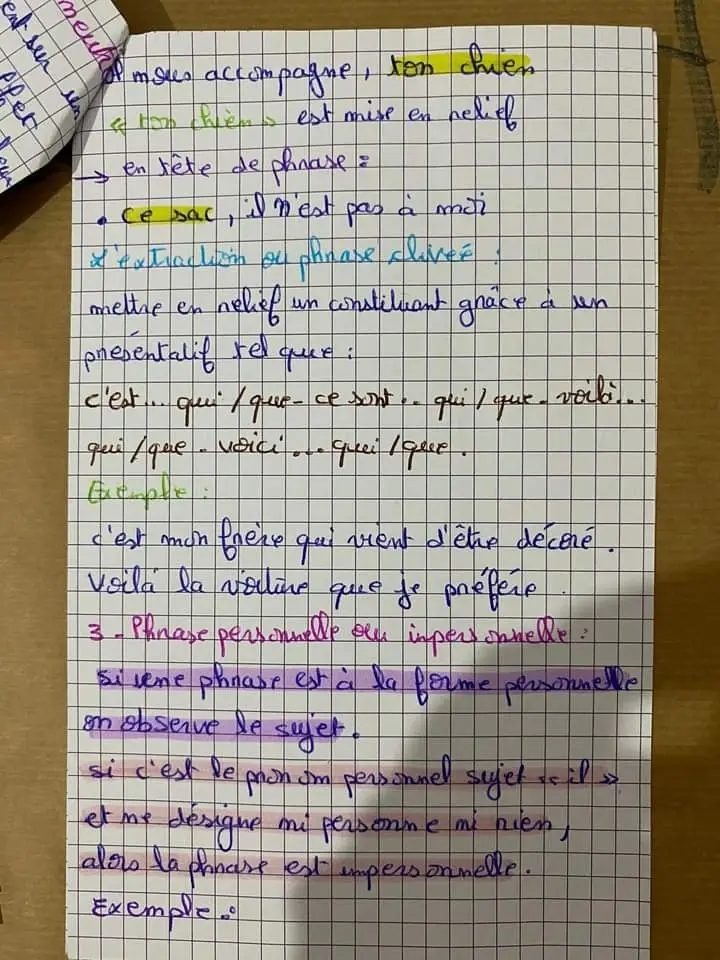 il nous accompagne, ton chien
« ton chien » est mise en relief
→ en tête de phrase :
• ce sac, il n'est pas à moi
L'extraction ou phrase clivée :
mettre en relief un constituant grâce à un
présentatif tel que :
c'est... qui / que - ce sont .. qui / que - voilà...
qui / que - voici ... qui / que.
Exemple :
c'est mon frère qui vient d'être décoré.
Voilà la voiture que je préfère.
3 - Phrase personnelle ou inpersonnelle :
si une phrase est à la forme personnelle
on observe le sujet.
si c'est le pronom personnel sujet « il »
et ne désigne ni personne ni rien,
alors la phrase est impersonnelle.
Exemple :